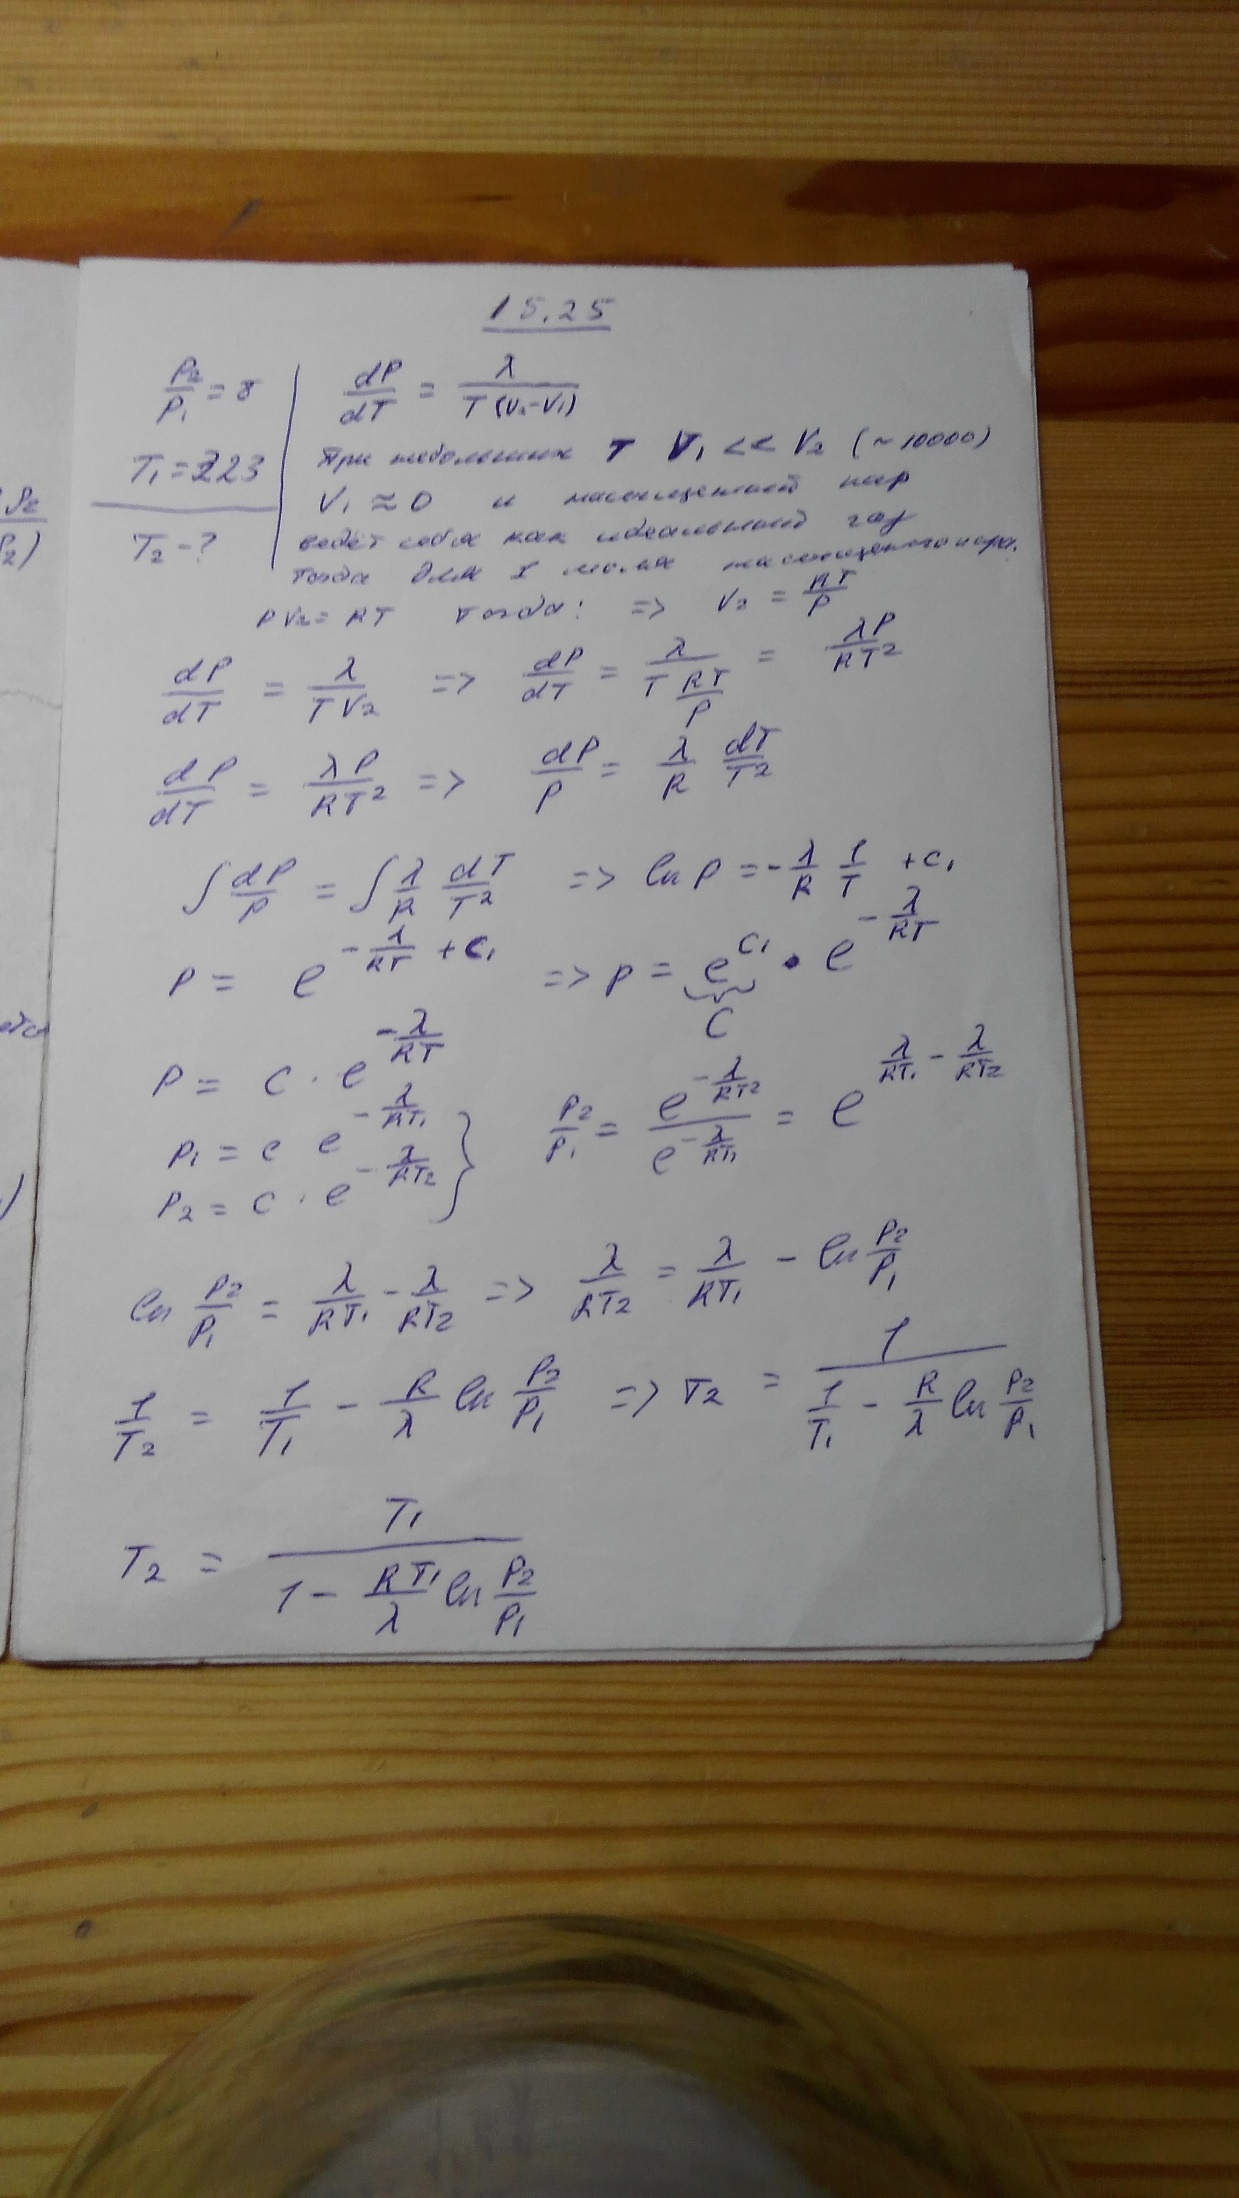 15.25
P₂/P₁ = 8
T₁ = 223
T₂ - ?
dP/dT = λ/(T (V₂-V₁))
При небольших T V₁ << V₂ (~10000)
V₁ ≈ 0 и насыщенный пар
ведёт себя как идеальный газ
тогда для 1 моля насыщенного пара.
PV₂ = RT тогда: => V₂ = RT/P
dP/dT = λ/(TV₂) => dP/dT = λ/(T RT/P) = λP/(RT²)
dP/dT = λP/(RT²) => dP/P = λ/R dT/T²
∫ dP/P = ∫ λ/R dT/T² => ln P = - λ/R 1/T + C₁
P = e^(-λ/(RT) + C₁) => P = e^(C₁) · e^(-λ/(RT))
C
P = C · e^(-λ/(RT))
P₁ = C e^(-λ/(RT₁))
P₂ = C · e^(-λ/(RT₂))
} P₂/P₁ = e^(-λ/(RT₂)) / e^(-λ/(RT₁)) = e^(λ/(RT₁) - λ/(RT₂))
ln P₂/P₁ = λ/(RT₁) - λ/(RT₂) => λ/(RT₂) = λ/(RT₁) - ln P₂/P₁
1/T₂ = 1/T₁ - R/λ ln P₂/P₁ => T₂ = 1/(1/T₁ - R/λ ln P₂/P₁)
T₂ = T₁/(1 - RT₁/λ ln P₂/P₁)